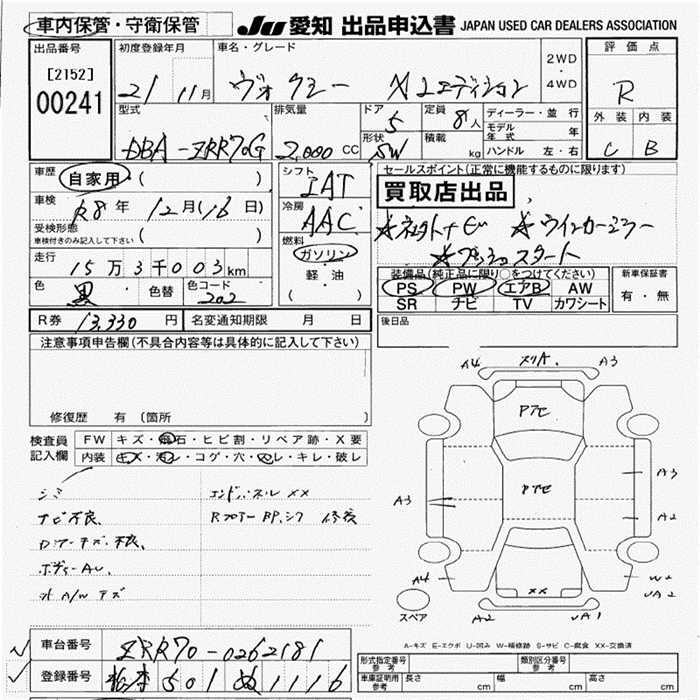 車内保管・守衛保管 JU 愛知 出品申込書 JAPAN USED CAR DEALERS ASSOCIATION
出品番号 初度登録年月 車名・グレード 2WD・4WD 評価点
[2152]
00241 21 11月 ヴォクシー R
型式 排気量 ドア 5 定員 8人 ディーラー・並行 外装 内装
DBA-ZRR70G 2,000 CC 形状 SW 積載 kg モデル年式 年 C B
ハンドル 左・右
車歴 自家用 ( ) シフト IAT セールスポイント(正常に機能するものに限ります)
車検 R8年 12月(16日) 冷房 AAC 買取店出品
受検形態 車検付きのみ記入して下さい ( ) 燃料 ガソリン ☆ナビ ☆ウインカーミラー
☆プッシュスタート
走行 15万3千003km 軽・油 装備品(純正品に限り○をつけてください) 新車保証書
色 黒 色替 色コード 202 ( ) PS PW エアB AW 有・無
SR ナビ TV カワシート
R券 13,330円 名変通知期限 月 日 後日品
注意事項申告欄(不具合内容等は具体的に記入して下さい)
修復歴 有 (箇所 )
検査員記入欄 FW キズ・飛石・ヒビ割・リペア跡・X要
内装 キズ・汚レ・コゲ・穴・スレ・キレ・破レ
シミ エンドパネルXX
ナビ不良、 修復
ボディーAU、
外A/Wキズ
A4 A3
PTセ
PTセ
A3 A3
A2
A4 XX W2
UA2
スペア A2 UA1
A-キズ E-エクボ U-凹み W-補修跡 S-サビ C-腐食 XX-交換済
車台番号 ZRR70-0262181
登録番号 栃木 501 ぬ 1116
形式指定番号 参考 類別区分番号 参考
車庫証明用 参考 長さ cm 幅 cm 高さ cm